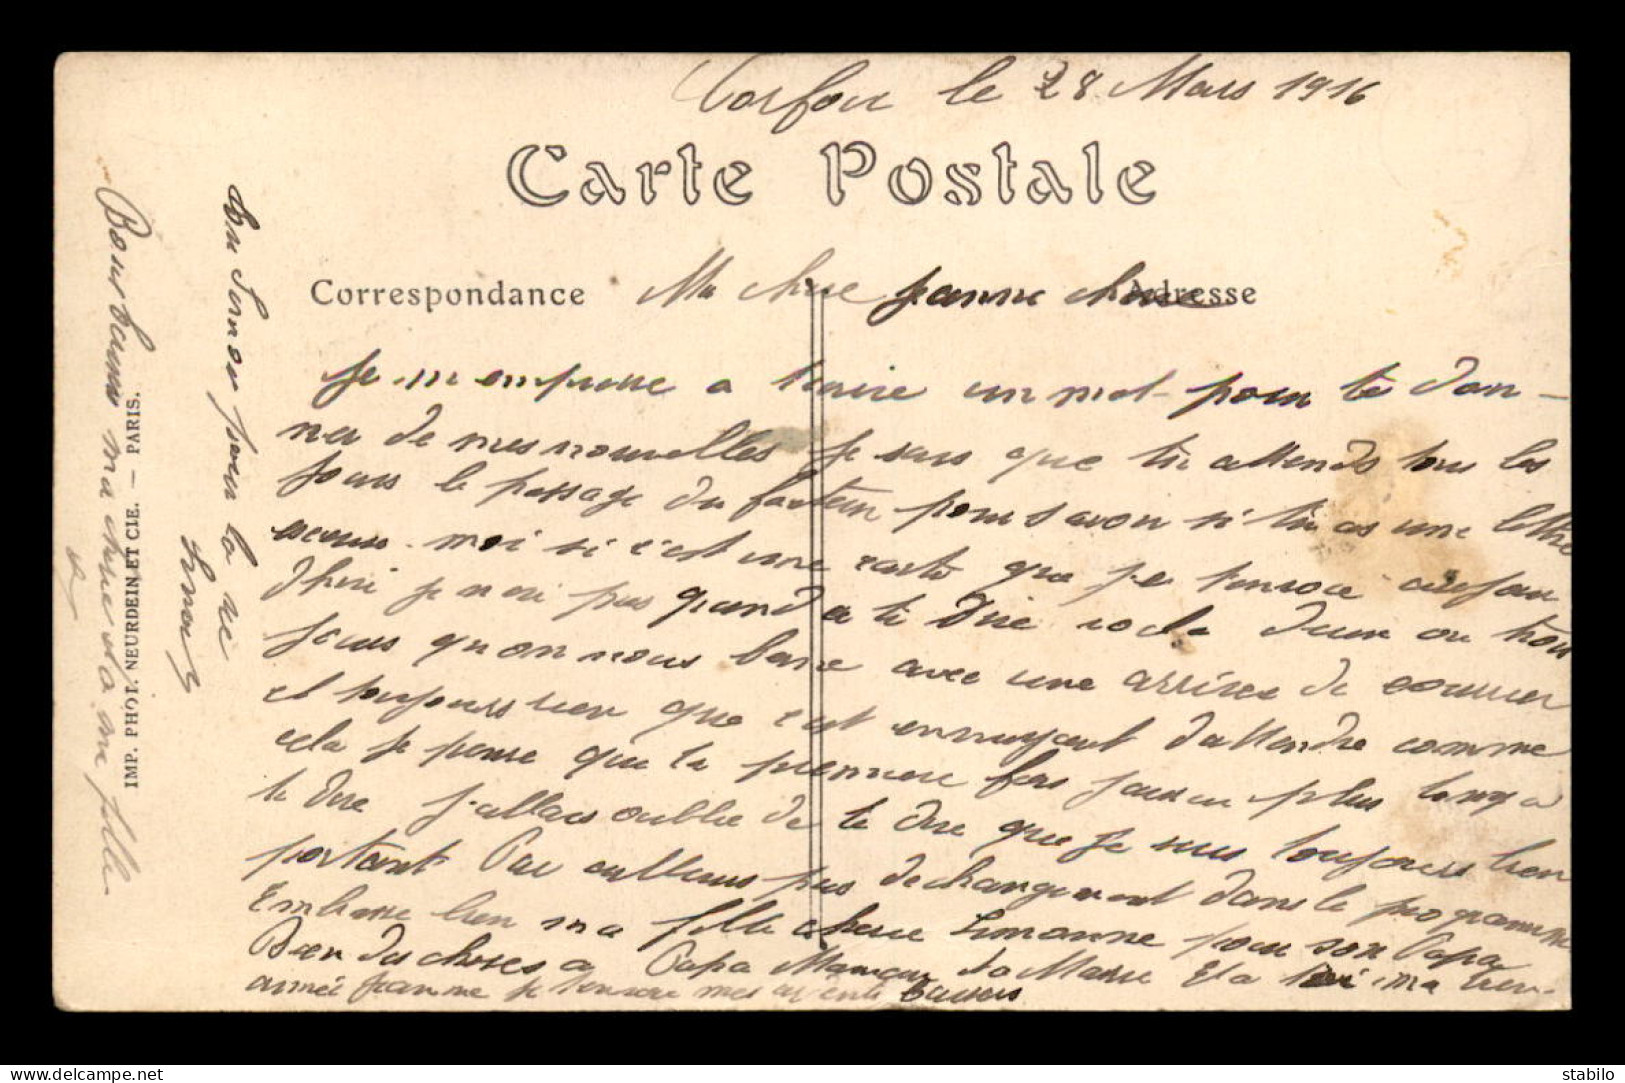 Corfou le 28 Mars 1916
Carte Postale
Correspondance
Adresse
Ma chere Jeanne cherie
Je m empresse a t ecrire un mot pour te don-
ner de mes nouvelles Je sais que tu attends tous les
jours le passage du facteur pour savoir si tu as une lettre
moi si c'est une carte que je t envoie aujour
dhui je n ai pas grand a te dire cela dure ou trois
jours qu on nous avec une arrivee de courrier
et toujours rien que c est ennuyant d attendre comme
cela je pense que la premiere fois j aurai plus long a
te dire j allais oublie de te dire que je suis toujours bien
portant Par ailleurs pas de changement dans le programme
Embrasse bien ma fille cherie Simonne pour son Papa
Bien des choses a Papa Maman Et a toi ma bien
aimée Jeanne je t envoie mes Baisers
Ton pour la vie
Bons baisers ma cherie a ma fille
IMP. PHOT. NEURDEIN ET CIE. — PARIS.
www.delcampe.net
stabilo